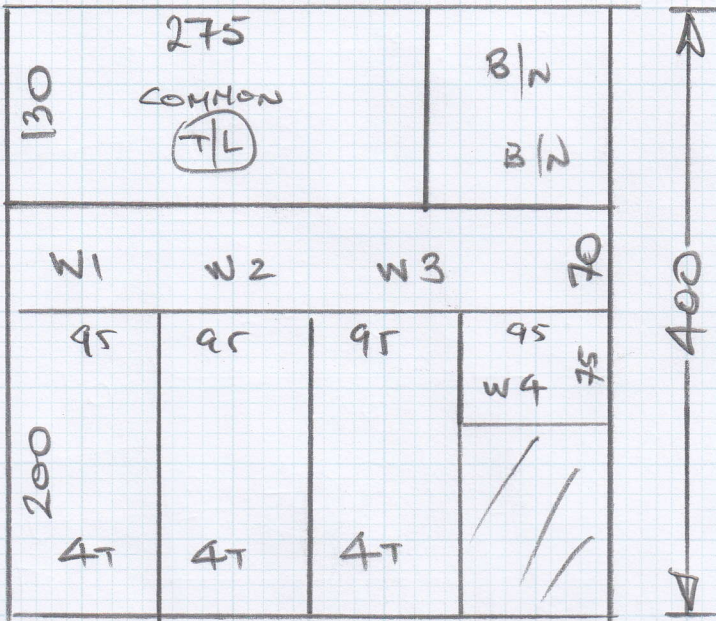 275
130
COMMON
T/L
B/N
B/N
W1 W2 W3 70
400
95 95 95 95
W4 75
200
4T 4T 4T